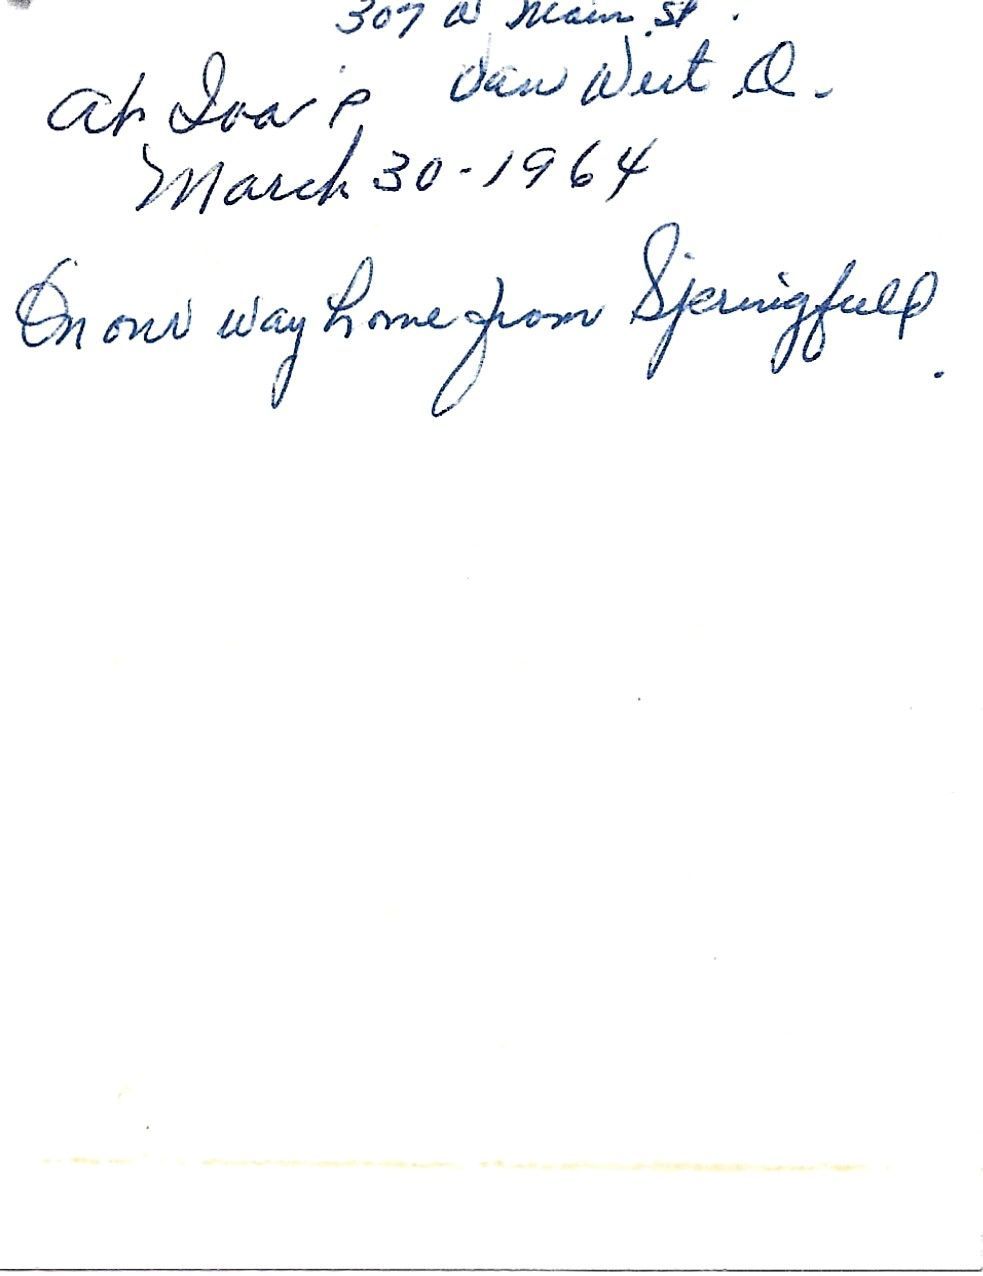 307 W Main St.
At Iva's Van Wert O.
March 30-1964
On our way home from Springfield.